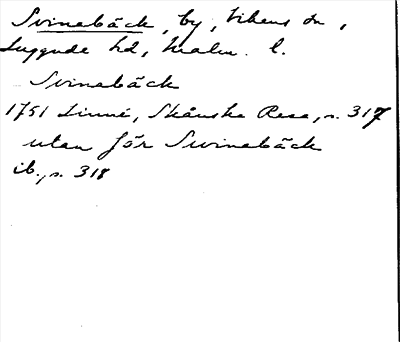 Svinebäck, by, Vikens sn,
Luggude hd, Malm. l.
Svinebäck
1751 Linné, Skånska Resa, s. 317
utan för Swinebäck
ib., s. 318